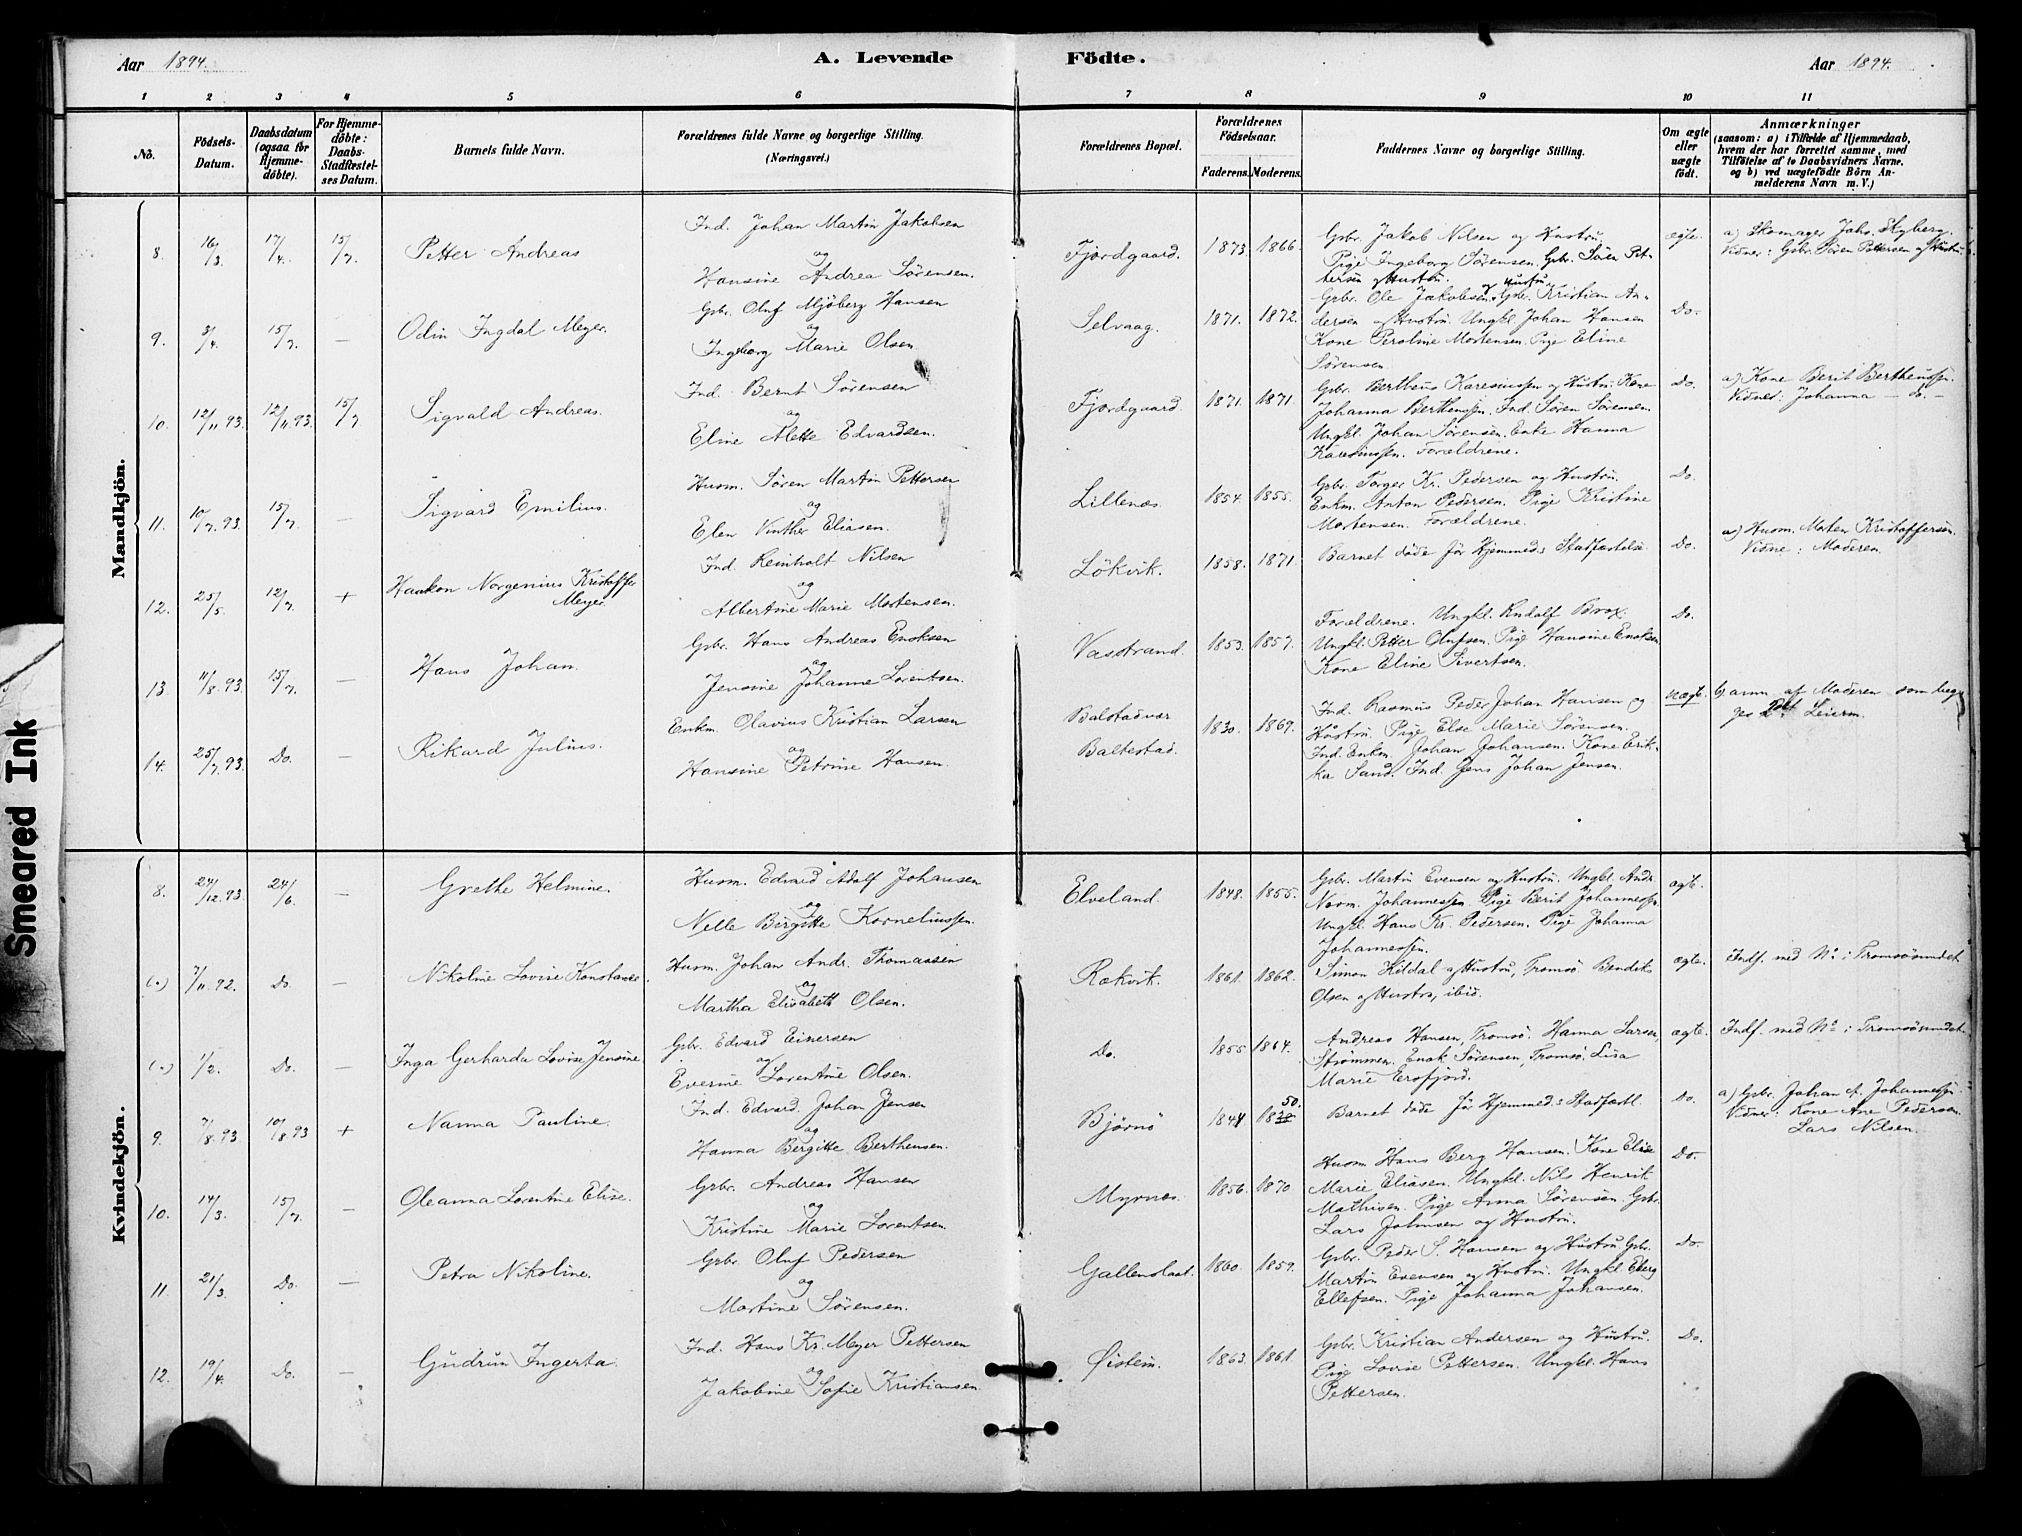 Aar 1894. A. Levende Födte. Aar 1894.
1 2 3 4 5 6 7 8 9 10 11
No. Födsels-Datum. Daabsdatum (ogsaa for Hjemmedöbte). For Hjemmedöbte: Daabs-Stadfæstelses Datum. Barnets fulde Navn. Forældrenes fulde Navne og borgerlige Stilling. (Næringsvei.) Forældrenes Bopæl. Forældrenes Födselsaar. Faderens. Moderens. Faddernes Navne og borgerlige Stilling. Om ægte eller uægte födt. Anmærkninger (saasom: a) i Tilfælde af Hjemmedaab, hvem der har forrettet samme, med Tilföielse af to Daabsvidners Navne, og b) ved uægtefödte Börn Anmelderens Navn m. V.)
Mandkjön.
8. 16/3. 17/4. 15/7. Petter Andreas
Ind. Johan Martin Jakobsen
og
Hansine Andrea Sørensen.
Fjordgaard. 1873. 1866.
Gbr. Jakob Nilsen og Hustru.
Pige Ingeborg Sørensen. Gbr. Søren Pet-
tersen og Hustru.
ægte.
a) Skomager Jahs. Skyberg.
Vidner: Gbr. Søren Pettersen og Hustru.
9. 3/4. 15/7. — Odin Ingdal Meyer.
Gbr. Oluf Mjöberg Hansen
og
Ingeborg Marie Olsen
Selvaag. 1871. 1872.
Gbr. Ole Jakobsen og Hustru. Gbr. Kristian An-
dersen og Hustru. Ungkl. Johan Hansen
Kone Peroline Mortensen. Pige Eline
Sørensen.
Do.
10. 12/11.93. 12/11.93. 15/7. Sigvald Andreas.
Ind. Bernt Sørensen
og
Eline Alette Edvardsen.
Fjordgaard. 1871. 1871.
Gbr. Bertheus Karesiussen og Hustru. Kone
Johanna Bertheussen. Ind. Søren Sørensen.
Ungkl. Johan Sørensen. Enke Hanna
Karesiussen. Forældrene.
Do.
a) Kone Berit Bertheussen.
Vidnes: Johanna — do. —
11. 10/7.93. 15/7. — Sigvard Emilius.
Husm. Søren Martin Pettersen
og
Elen Vinther Eliasen.
Lillenes. 1854. 1855.
Gbr. Torger Kr. Pedersen og Hustru.
Enkm. Anton Pedersen. Pige Kristine
Mortensen. Forældrene.
Do.
12. 25/5. 12/7. + Haakon Norgenius Kristoffer
Meyer.
Ind. Reinholt Nilsen
og
Albertine Marie Mortensen.
Lökvik. 1858. 1871.
Barnet døde før Hjemmed.s Stadfæstelse
Do.
a) Husm. Morten Kristoffersen.
Vidne: Moderen.
13. 11/8.93. 15/7. — Hans Johan.
Gbr. Hans Andreas Enoksen
og
Jensine Johanne Lorentsen.
Vasstrand. 1853. 1857.
Forældrene. Ungkl. Rudolf Brox.
Ungkl. Petter Olufsen. Pige Hansine Enoksen
Kone Eline Sivertsen.
Do.
14. 25/7.93. Do. — Rikard Julius.
Enkm. Olavius Kristian Larsen
og
Hansine Petrine Hansen.
Balstadvær
Baltestad. 1830. 1869.
Ind. Rasmus Peder Johan Hansen og
Hustru. Pige Else Marie Sørensen.
Ind. Enkm. Johan Johansen. Kone Erik-
ka Sand. Ind. Jens Johan Jensen.
uægte.
b) anm. af Moderen som
Leierm.
Kvindekjön.
8. 24/12.93. 24/6. — Grethe Helmine.
Husm. Edvard Adolf Johansen
og
Nelle Birgitte Korneliussen.
Elveland. 1848. 1855.
Gbr. Martin Evensen og Hustru. Ungkl. Andr.
Norm. Johannessen. Pige Berit Johannessen.
Ungkl. Hans Kr. Pedersen. Pige Johanna
Johannessen.
ægte.
(0) 7/11.92. Do. — Nikoline Lovise Konstanse
Husm. Johan Andr. Thomassen
og
Martha Elisabeth Olsen.
Rækvik. 1861. 1862.
Simon Hildal og Hustru, Tromsø. Bendik
Olsen og Hustru, ibid.
ægte.
Indf. med No i Tromsøsundet
(0) 1/2. Do. — Inga Gerharda Lovise Jensine.
Gbr. Edvard Einersen
og
Everine Lorentine Olsen.
Do. 1855 1864.
Andreas Hansen, Tromsø. Hanna Larsen,
Strømmen. Enok Sørensen, Tromsø. Lisa
Marie Ersfjord.
ægte.
Indf. med No i Tromsøsundet
9. 7/8.93. 10/8.93 + Nanna Pauline.
Ind. Edvard Johan Jensen
og
Hanna Birgitte Berthensen.
Bjørnø 1844 1850.
Barnet døde før Hjemmed.s Stadfæst.
Do.
a) Gbr. Johan A. Johannessen.
Vidner: Kone Ane Pedersen
Lars Nilsen.
10. 14/3. 15/7. — Oleanna Lorentine Elise.
Gbr. Andreas Hansen
og
Kristine Marie Lorentsen.
Myrnes. 1856. 1870
Husm. Hans Berg Hansen. Kone Elise
Marie Eliasen. Ungkl. Nils Henrik
Mathisen. Pige Anna Sørensen. Gbr.
Lars Johnsen og Hustru.
Do.
11. 21/3. Do. — Petra Nikoline.
Gbr. Oluf Pedersen
og
Martine Sørensen.
Gallenslaat. 1860. 1859.
Gbr. Peder S. Hansen og Hustru. Gbr.
Martin Evensen og Hustru. Ungkl. Eberg
Ellefsen. Pige Johanna Johansen.
Do.
12. 19/4. Do. — Gudrun Ingerta.
Ind. Hans Kr. Meyer Pettersen
og
Jakobine Sofie Kristiansen.
Øistein. 1863. 1861.
Gbr. Kristian Andersen og Hustru.
Pige Lovise Pettersen. Ungkl. Hans
Pettersen.
Do.
Smeared Ink